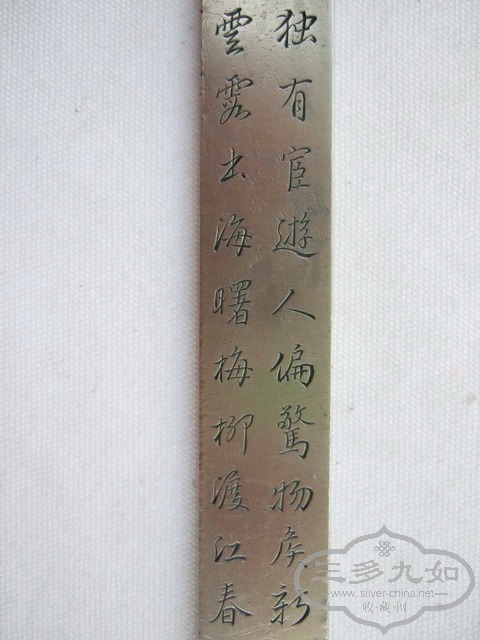 独有宦遊人偏驚物候新
雲霞出海曙梅柳渡江春
三多九如
www.silver-china.net
收藏网